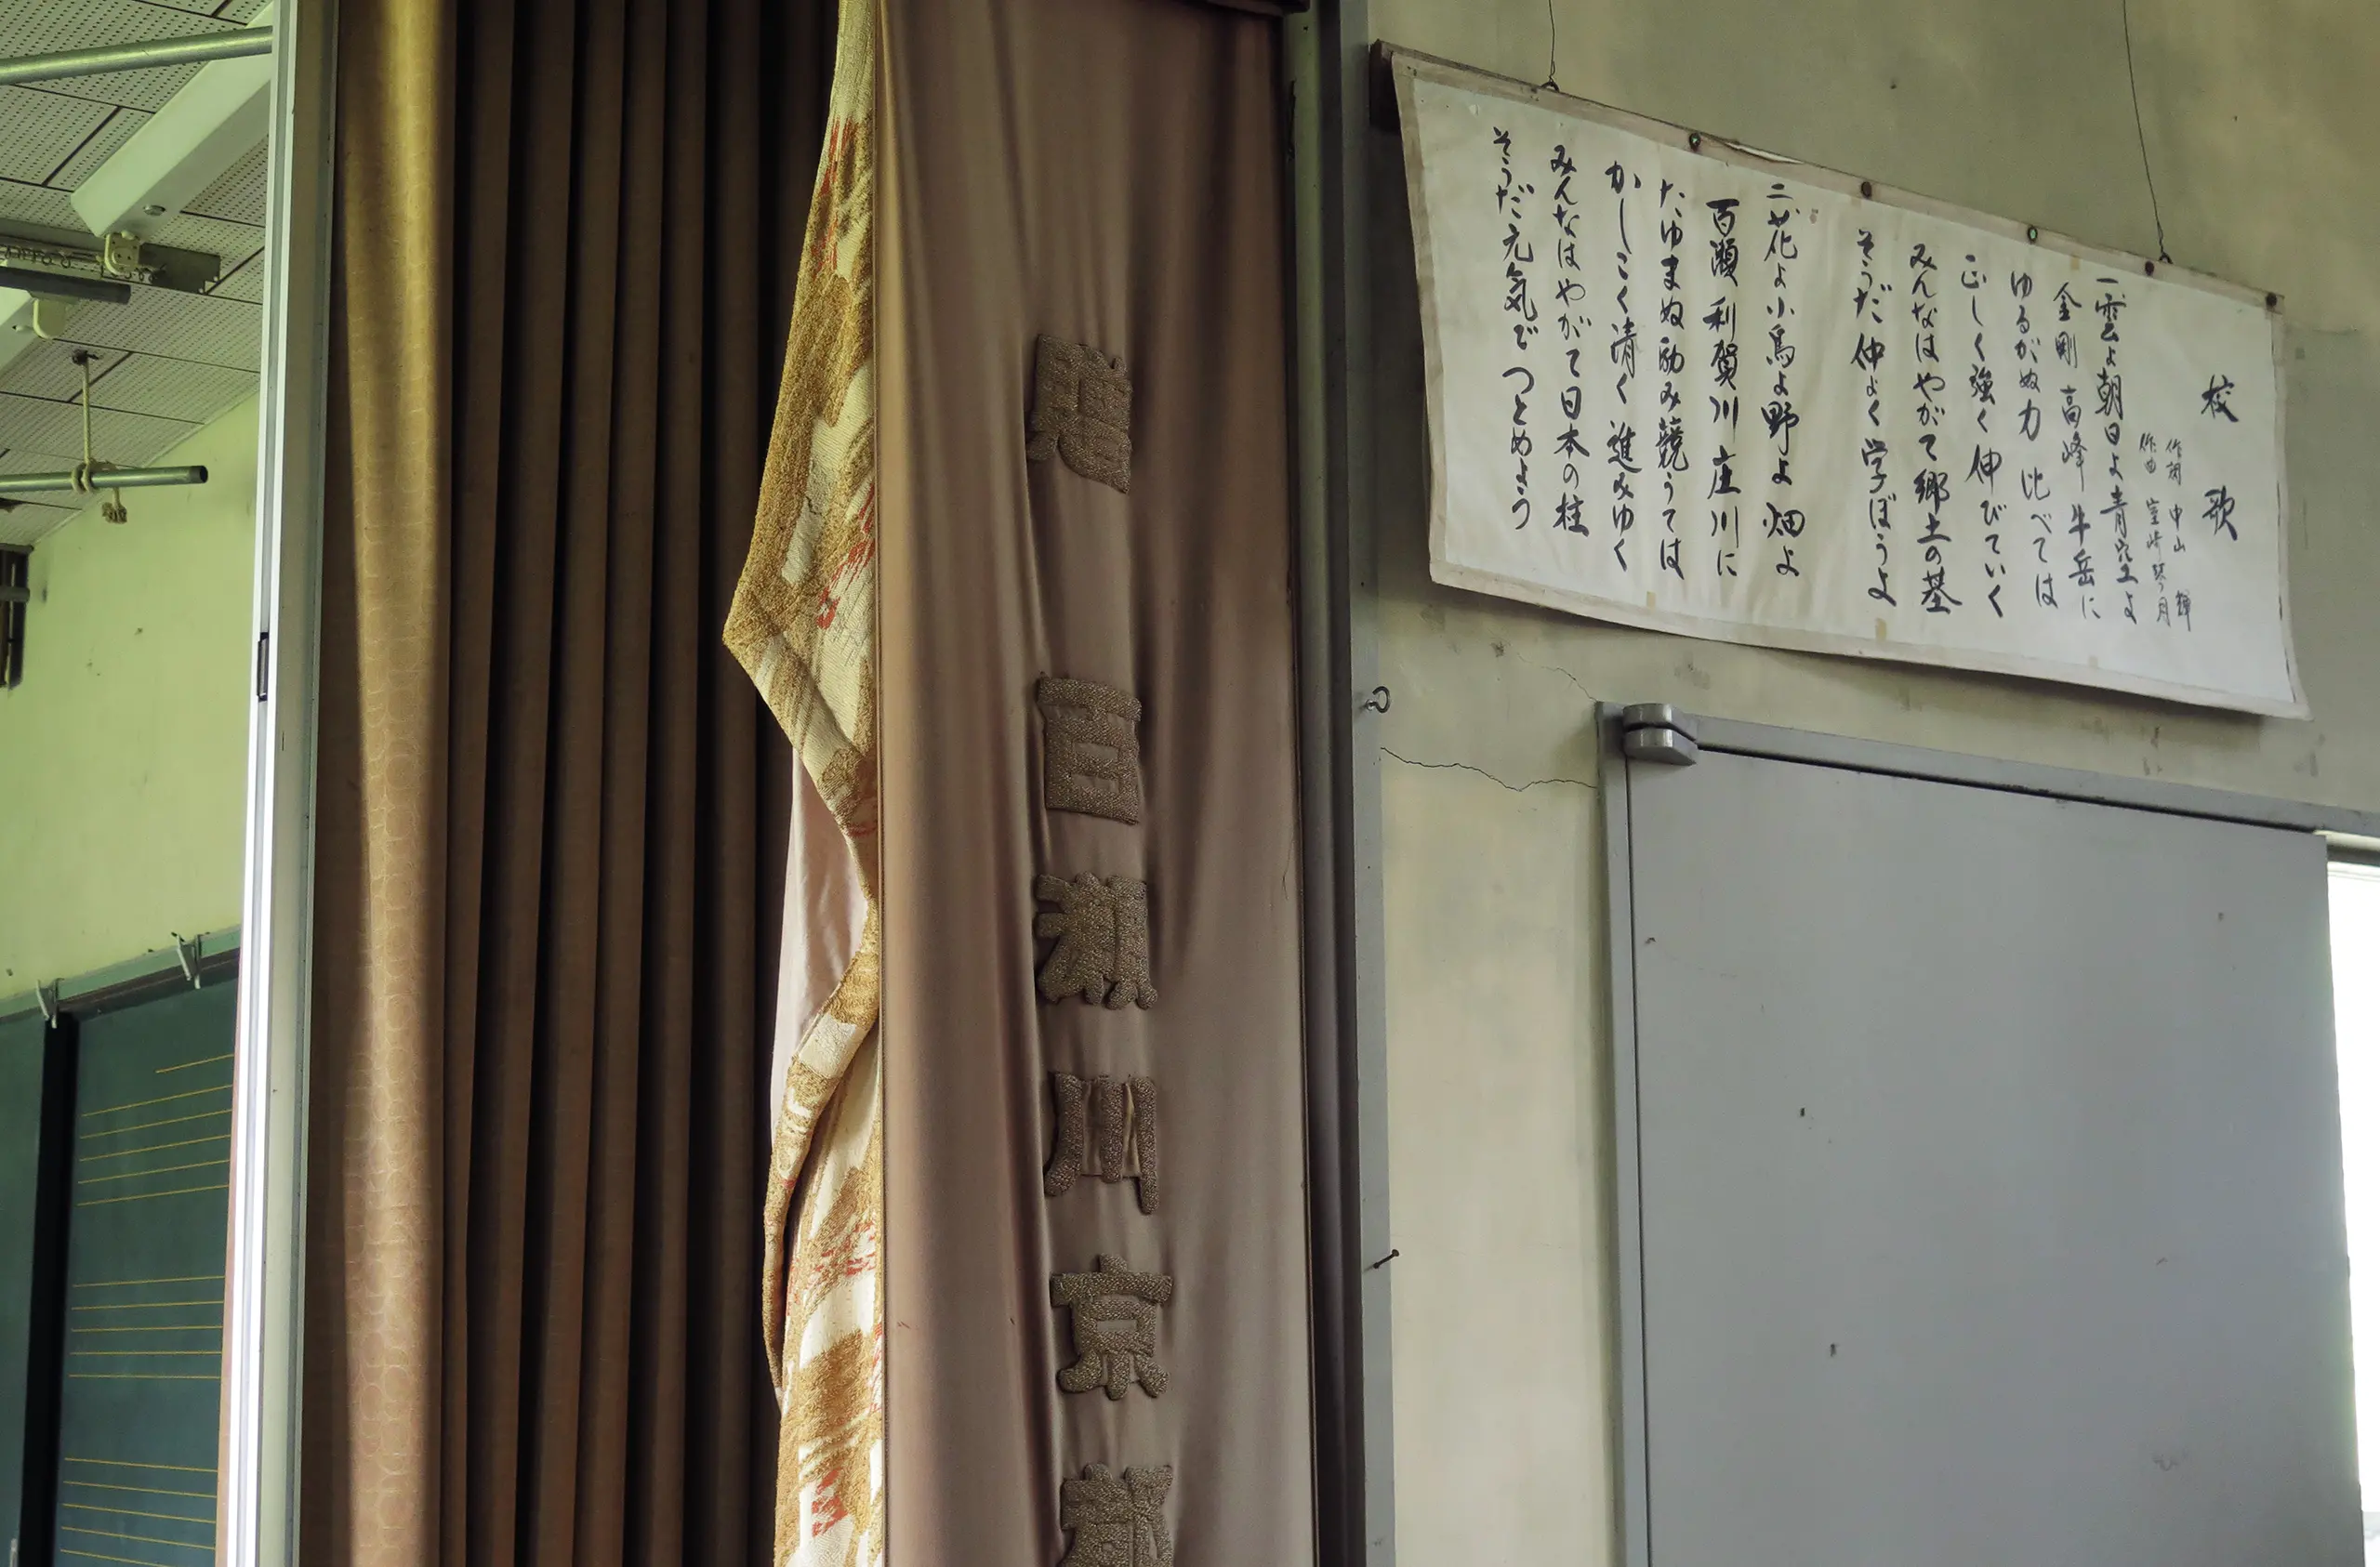 校歌
作詞 中山 輝
作曲 室崎琴月
一雲よ朝日よ青空よ
金剛高峰牛岳に
ゆるがぬ力 比べては
正しく強く伸びていく
みんなはやがて郷土の基
そうだ仲よく学ぼうよ
二花よ小鳥よ野よ畑よ
百瀬利賀川庄川に
たゆまぬ励み競うては
かしこく清く進みゆく
みんなはやがて日本の柱
そうだ元気でつとめよう
贈
百瀬川京都